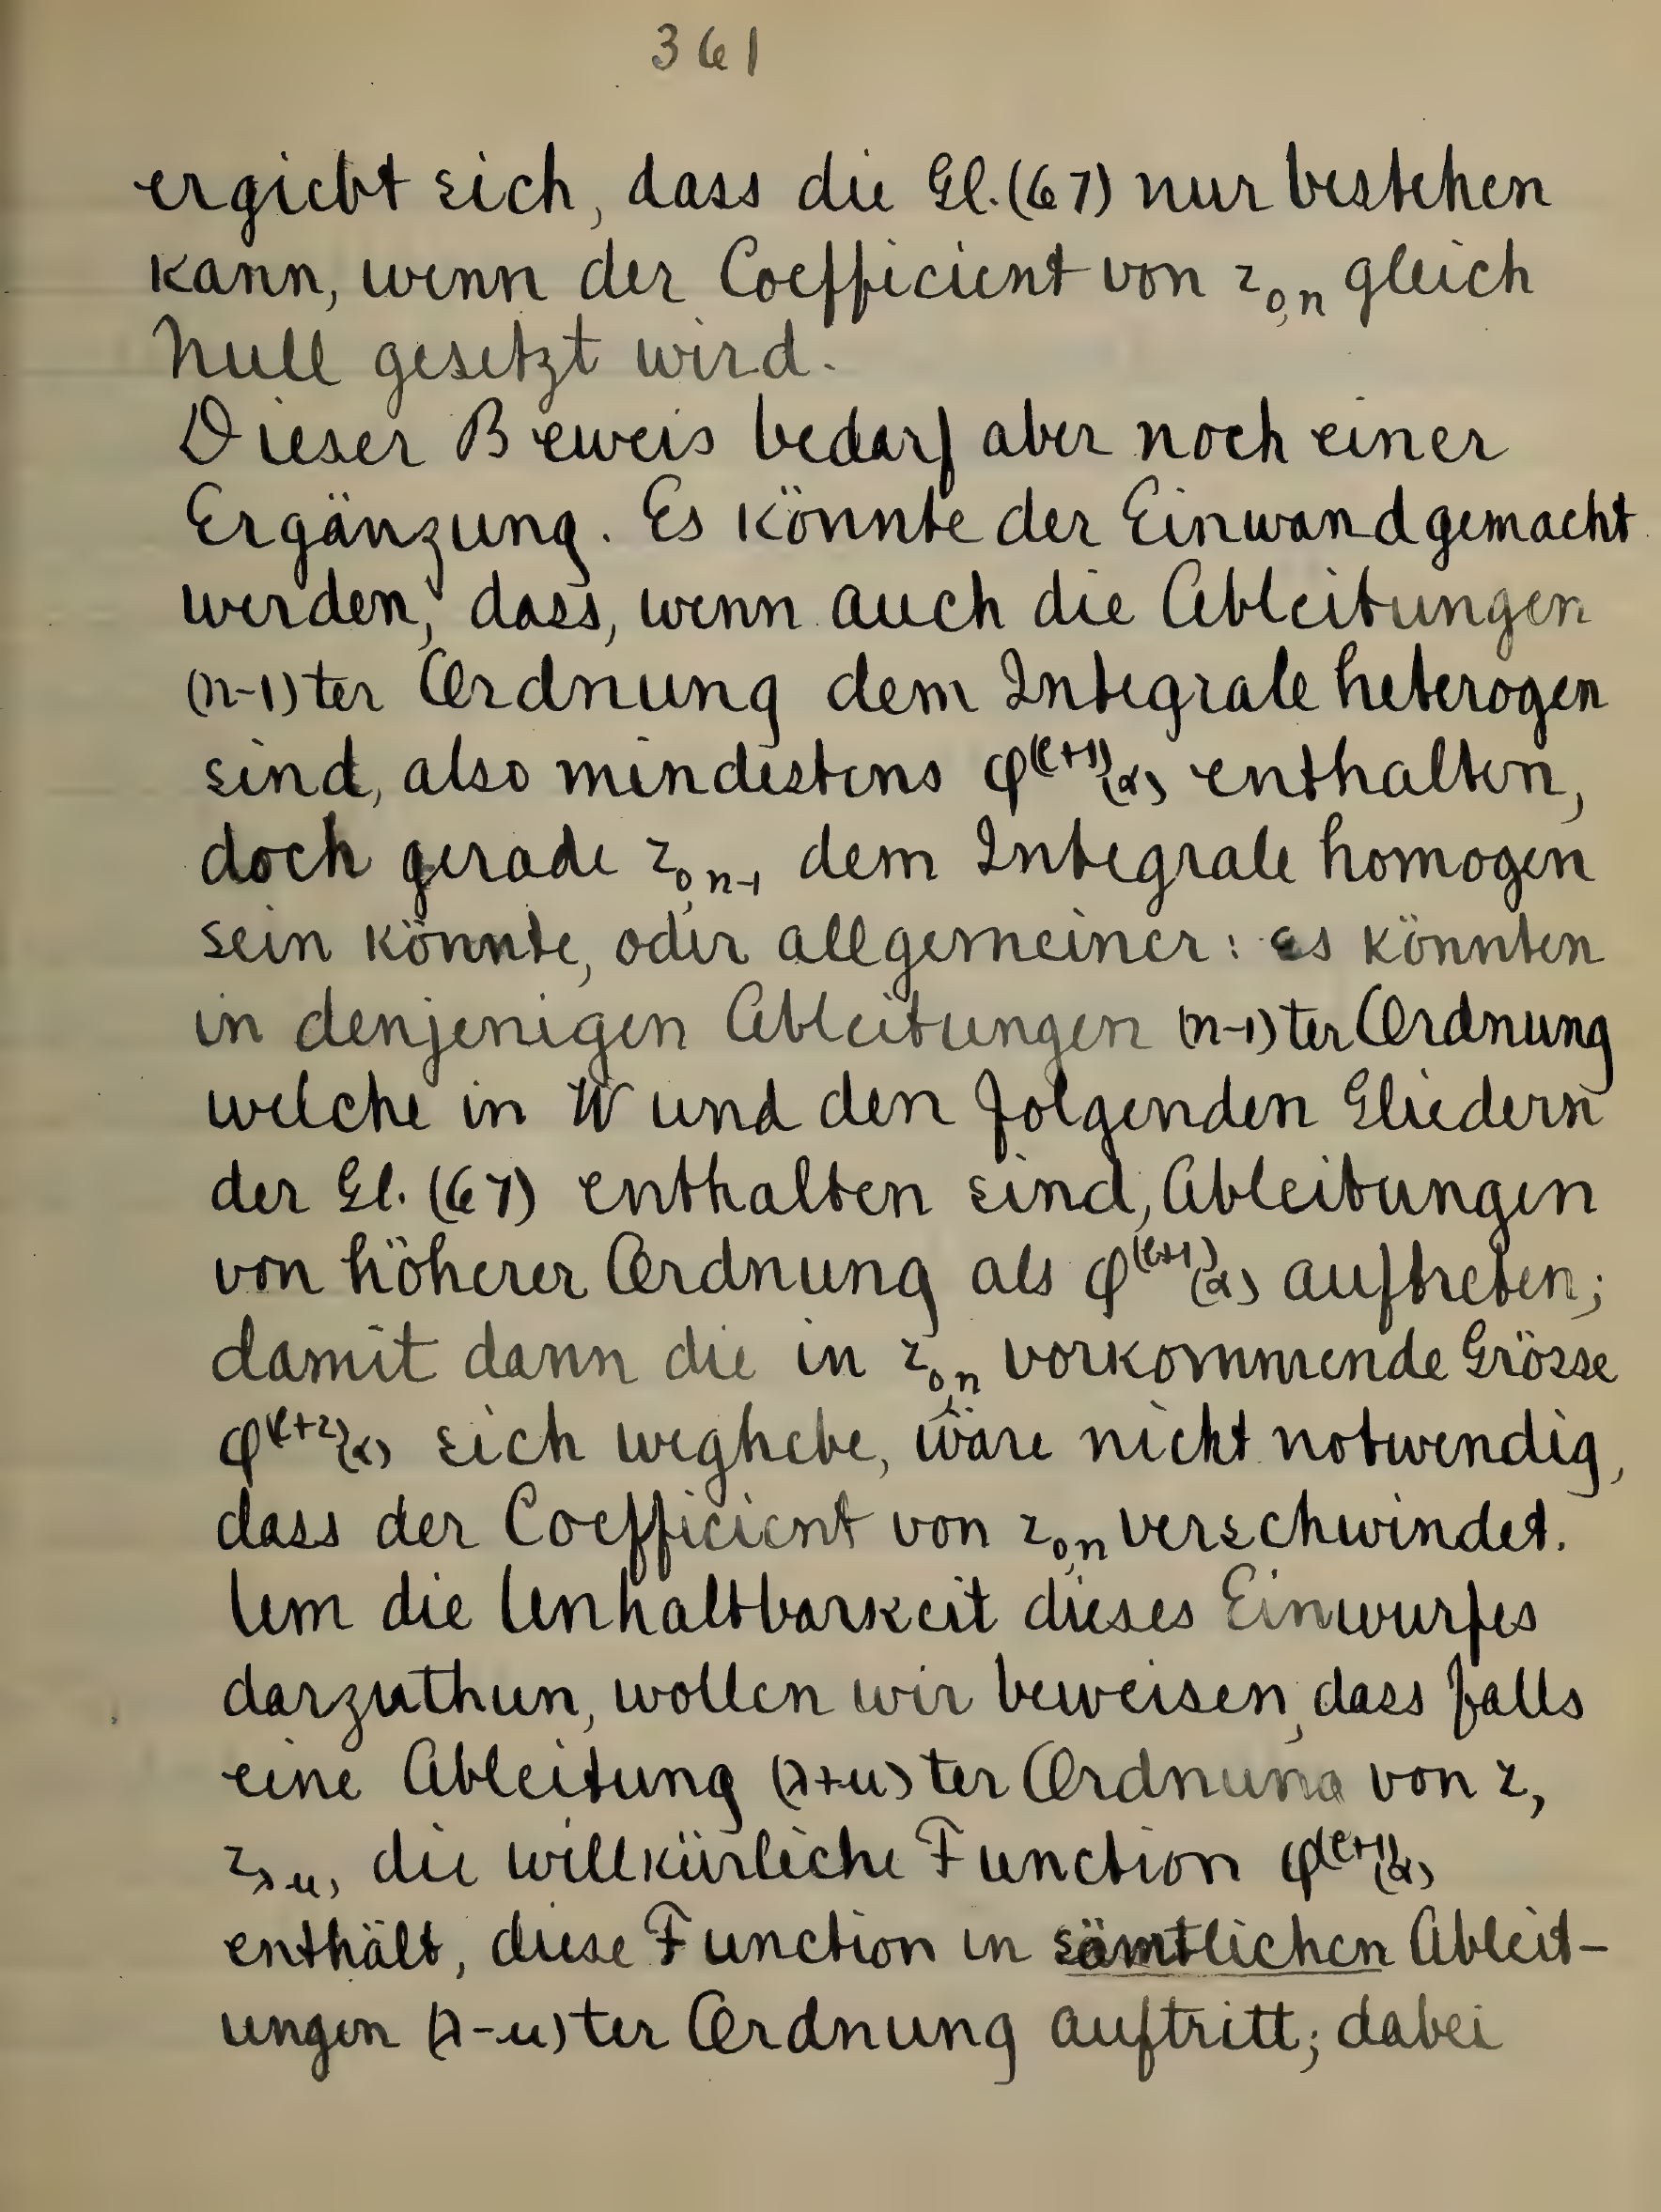 361
ergiebt sich, dass die Gl.(67) nur bestehen
kann, wenn der Coefficient von z₀,ₙ gleich
Null gesetzt wird.
Dieser Beweis bedarf aber noch einer
Ergänzung. Es könnte der Einwand gemacht
werden, dass, wenn auch die Ableitungen
(n-1)ter Ordnung dem Integrale heterogen
sind, also mindestens φ^(l+1)(α) enthalten,
doch gerade z₀,ₙ₋₁ dem Integrale homogen
sein könnte, oder allgemeiner: es könnten
in denjenigen Ableitungen (n-1)ter Ordnung
welche in W und den folgenden Gliedern
der Gl. (67) enthalten sind, Ableitungen
von höherer Ordnung als φ^(l+1)(α) auftreten;
damit dann die in z₀,ₙ vorkommende Grösse
φ^(l+2)(α) sich weghebe, wäre nicht notwendig,
dass der Coefficient von z₀,ₙ verschwindet.
Um die Unhaltbarkeit dieses Einwurfes
darzuthun, wollen wir beweisen, dass falls
eine Ableitung (λ+μ)ter Ordnung von z,
z_λμ, die willkürliche Function φ^(l+1)(α)
enthält, diese Function in sämtlichen Ableit-
ungen (λ-μ)ter Ordnung auftritt; dabei